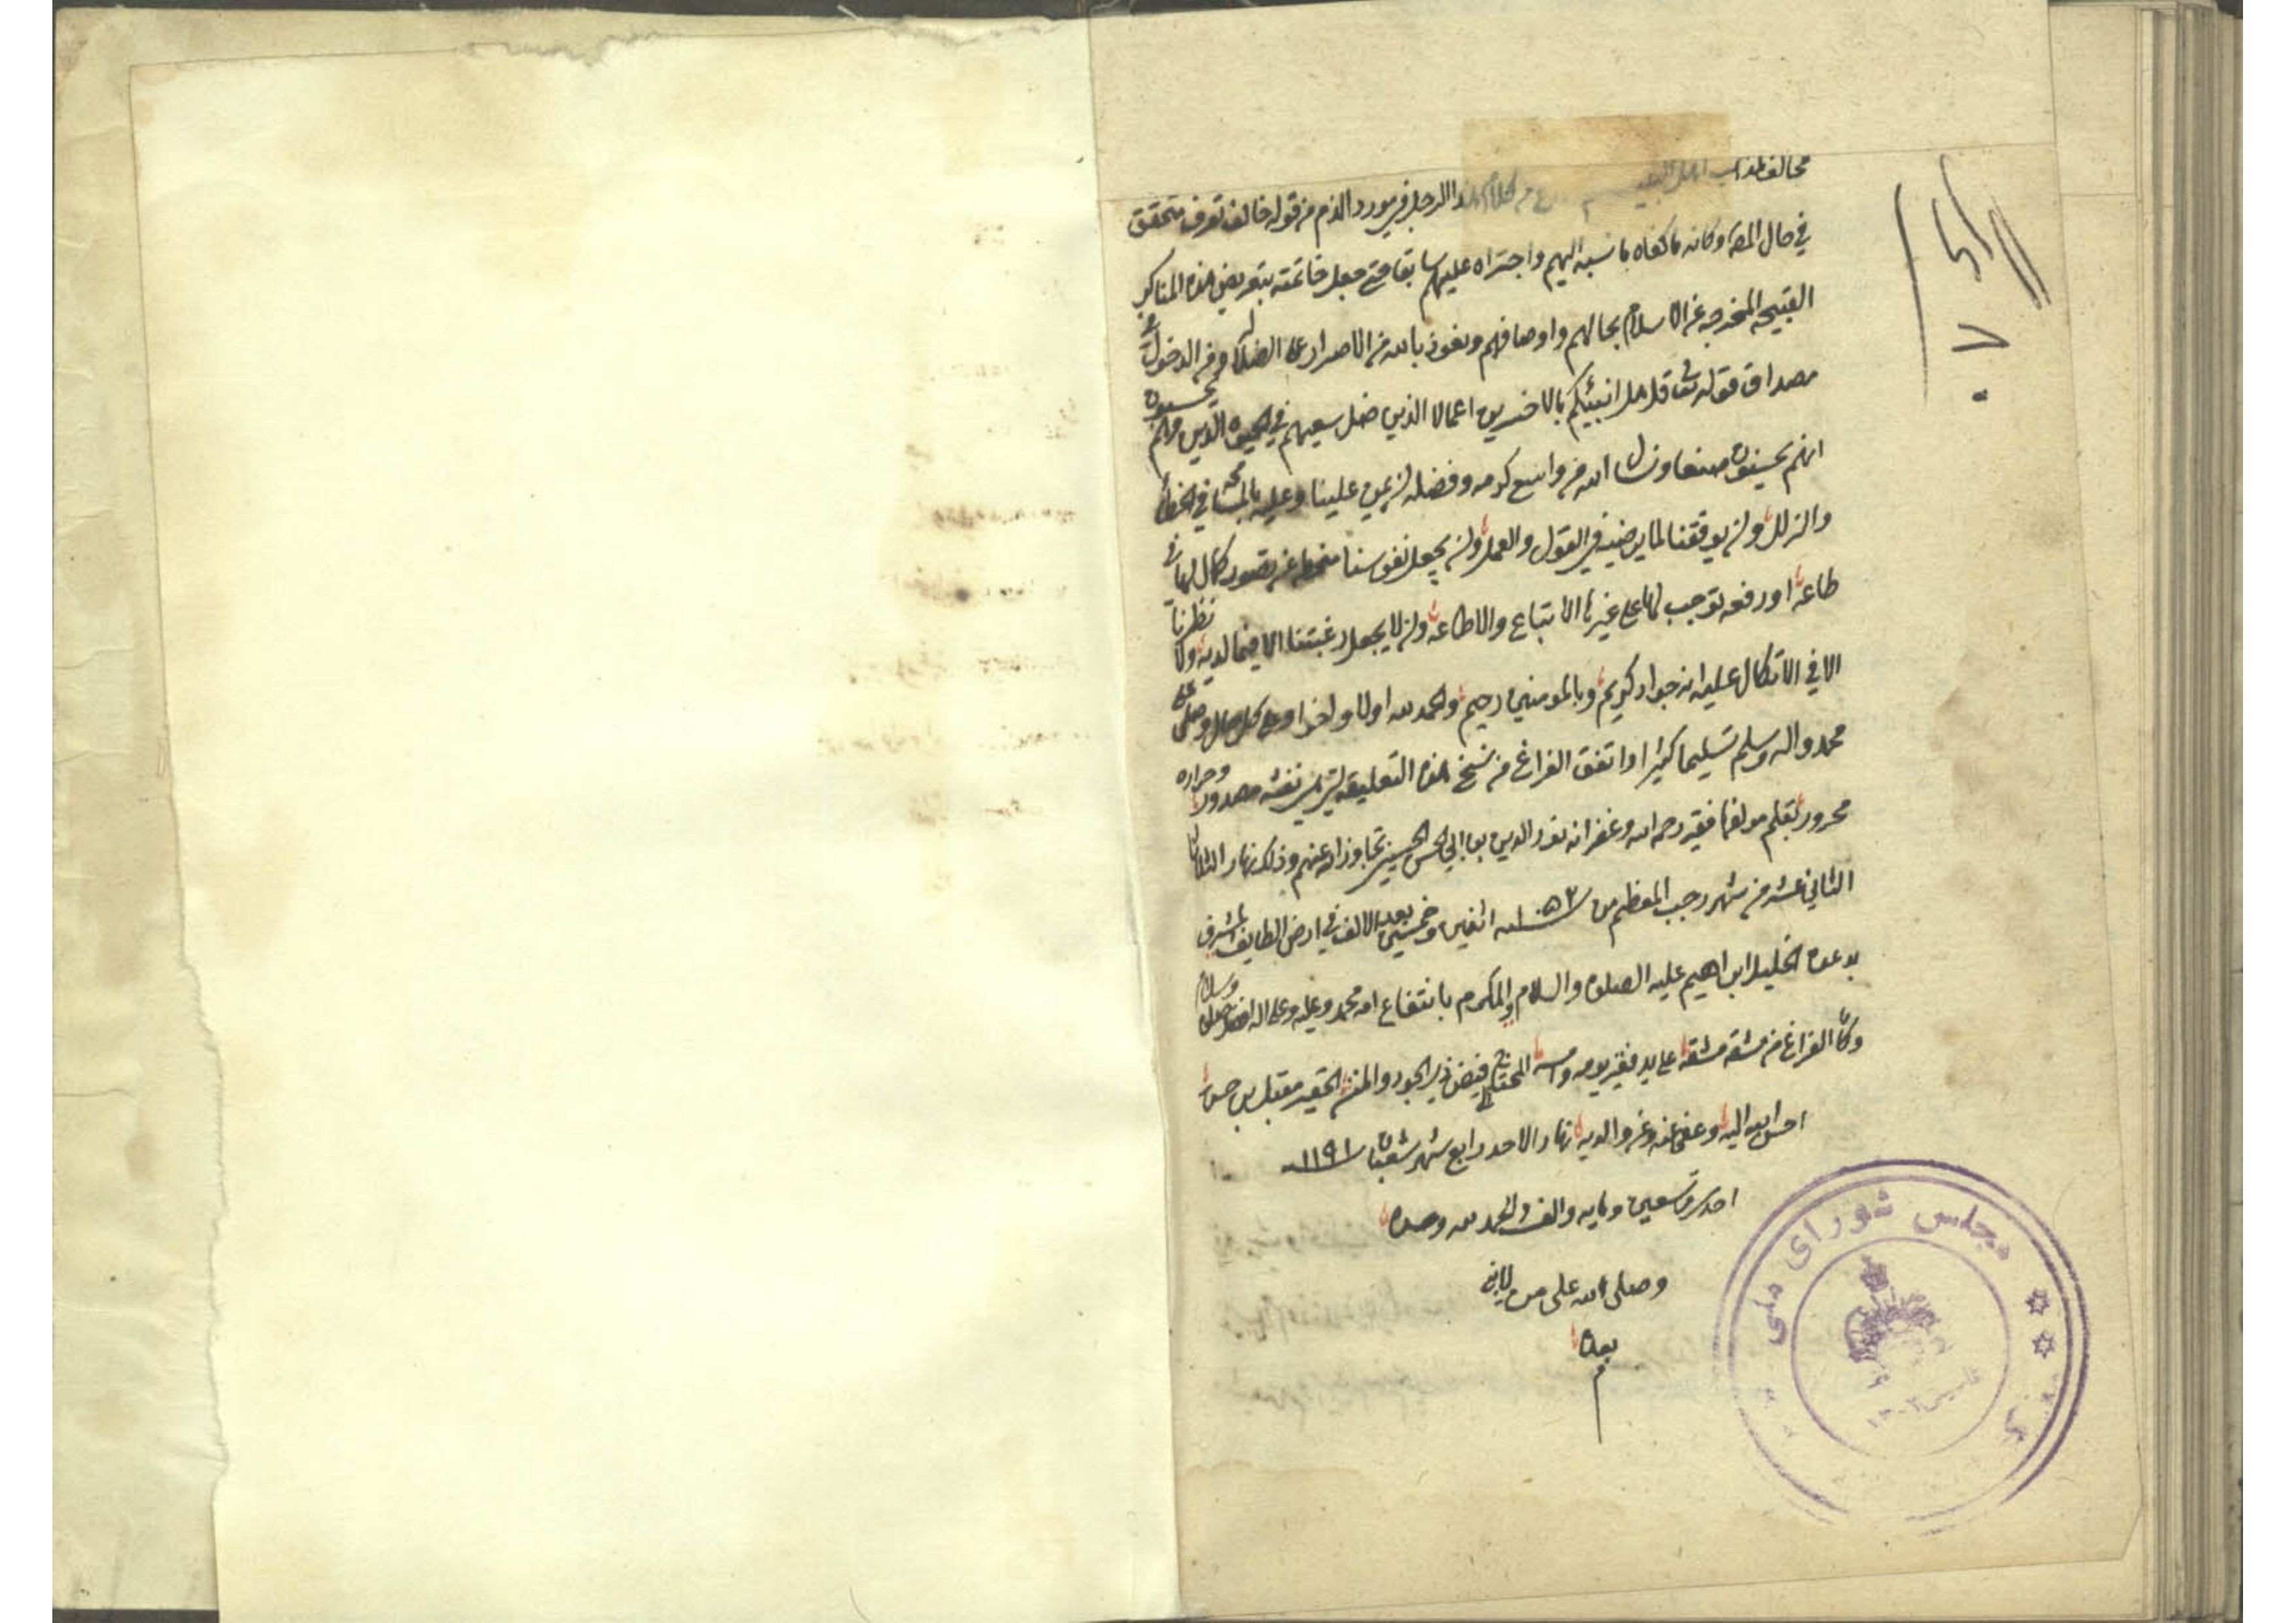 مخالف لمذاهب اهل البيت من كلام هذا الرجل في مورد الذم من قوله خالف تعرف متحقق
في حال المص وكانه ما كفاه ما نسبه اليهم واجتراه عليهم سابقا حتى جعل خاتمته بتعريض هذه المناكر
القبيحه المخرجه عن الاسلام بحالهم واوصافهم ونعوذ بالله من الاصرار على الضلاله ومن الدخول في
مصداق قوله تعالى قل هل انبئكم بالاخسرين اعمالا الذين ضل سعيهم في الحيوه الدنيا وهم يحسبون
انهم يحسنون صنعا ونسال الله من واسع كرمه وفضله ان يمن علينا وعليه بالمسامحه في الخطأ
والزلل وان يوفقنا لما يرضيه في القول والعمل وان يجعل نفوسنا منحطه عن تصور كمال لها في
طاعه او رفعه توجب لها على غيرها الاتباع والاطاعه وان لا يجعل رغبتنا الا فيما لديه ولا نظرنا
الا في الاتكال عليه انه جواد كريم وبالمومنين رحيم والحمد لله اولا واخرا وعلى كل حال وصلى على
محمد واله وسلم تسليما كثيرا واتفق الفراغ من نسخ هذه التعليقه نفثه مصدور وحراره
محرور بقلم مولفها فقير رحمه الله وغفرانه نور الدين بن ابي الحسن الحسيني تجاوز الله عنهم وذلك نهار الثلاثا
الثاني عشر من شهر رجب المعظم من سنه ١٠٥٢ اثنين وخمسين بعد الالف في ارض الطايف المشرف
بدعوه الخليل ابراهيم عليه الصلوه والسلام والمكرم بانتفاع امه محمد وعليه وعلى اله افضل صلوه وسلام
وكان الفراغ من مشقه مشقه على يد فقير يومه وامسه المحتاج الى فيض ذي الجود والمنن الحقير مقبل بن حسن
احسن الله اليه وعفى عنه وعن والديه نهار الاحد رابع شهر شعبان سنه ١١٩١
احدى وتسعين ومايه والف والحمد لله وحده
وصلى الله على من لا نبي
بعده
م
مجلس شورای ملی
تاسیس ١٣٠٢